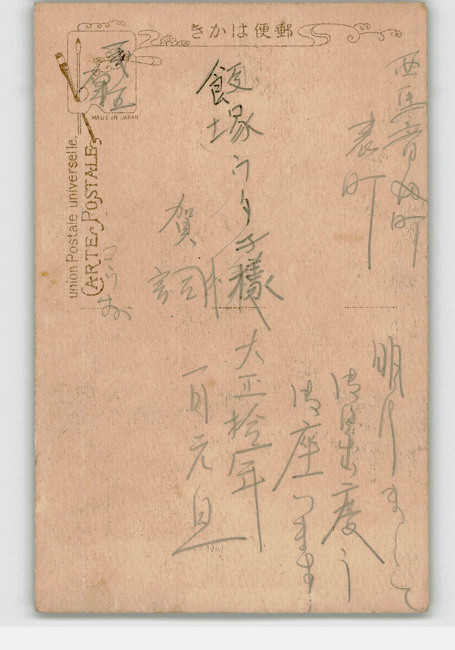 きかは便郵
MADE IN JAPAN
union Postale universelle.
CARTE POSTALE
表町
飯塚うた子様
賀詞
明けまして
御目出度う
御座います
大正拾年
一月元旦